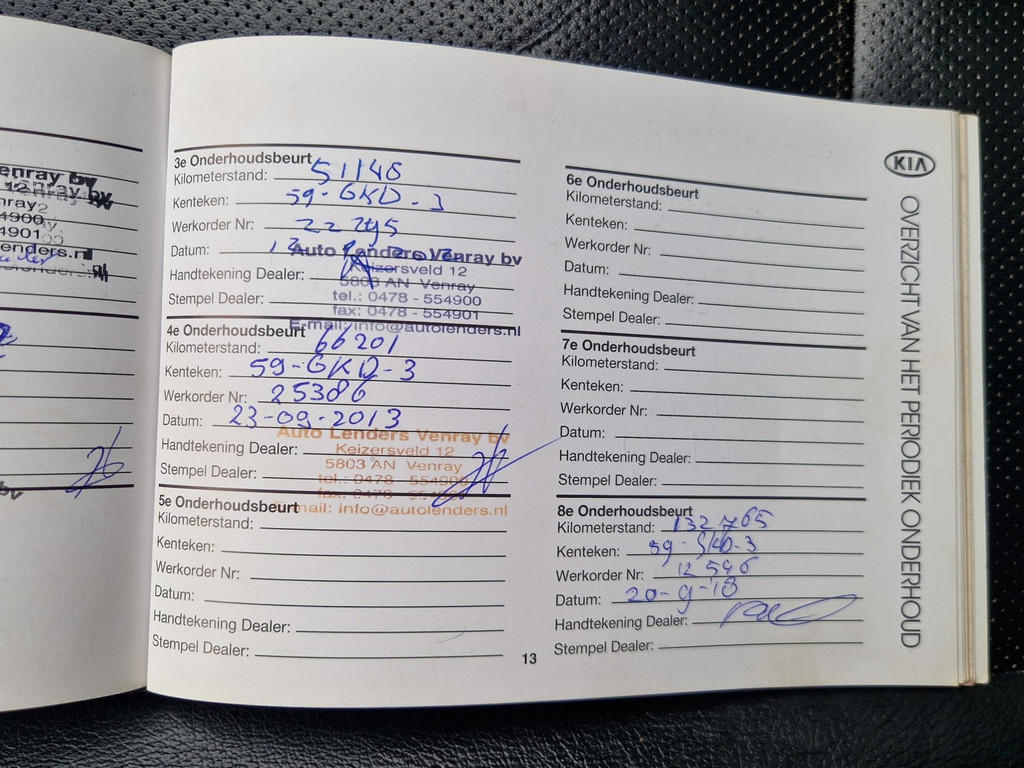 enray bv
12
nray
4900
4901
enders.nl
3e Onderhoudsbeurt
Kilometerstand: 51148
Kenteken: 59-GKD-3
Werkorder Nr: 22795
Datum:
Auto Lenders Venray bv
Handtekening Dealer:
Keizersveld 12
5803 AN Venray
Stempel Dealer:
tel.: 0478 - 554900
fax: 0478 - 554901
E-mail: info@autolenders.nl
4e Onderhoudsbeurt
Kilometerstand: 66201
Kenteken: 59-GKD-3
Werkorder Nr: 25386
Datum: 23-09-2013
Auto Lenders Venray bv
Handtekening Dealer:
Keizersveld 12
5803 AN Venray
Stempel Dealer:
tel.: 0478 - 554900
fax: 0478 - 554901
E-mail: info@autolenders.nl
5e Onderhoudsbeurt
Kilometerstand:
Kenteken:
Werkorder Nr:
Datum:
Handtekening Dealer:
Stempel Dealer:
13
6e Onderhoudsbeurt
Kilometerstand:
Kenteken:
Werkorder Nr:
Datum:
Handtekening Dealer:
Stempel Dealer:
7e Onderhoudsbeurt
Kilometerstand:
Kenteken:
Werkorder Nr:
Datum:
Handtekening Dealer:
Stempel Dealer:
8e Onderhoudsbeurt
Kilometerstand: 132765
Kenteken: 59-GKD-3
Werkorder Nr: 12546
Datum: 20-9-18
Handtekening Dealer:
Stempel Dealer:
KIA
OVERZICHT VAN HET PERIODIEK ONDERHOUD